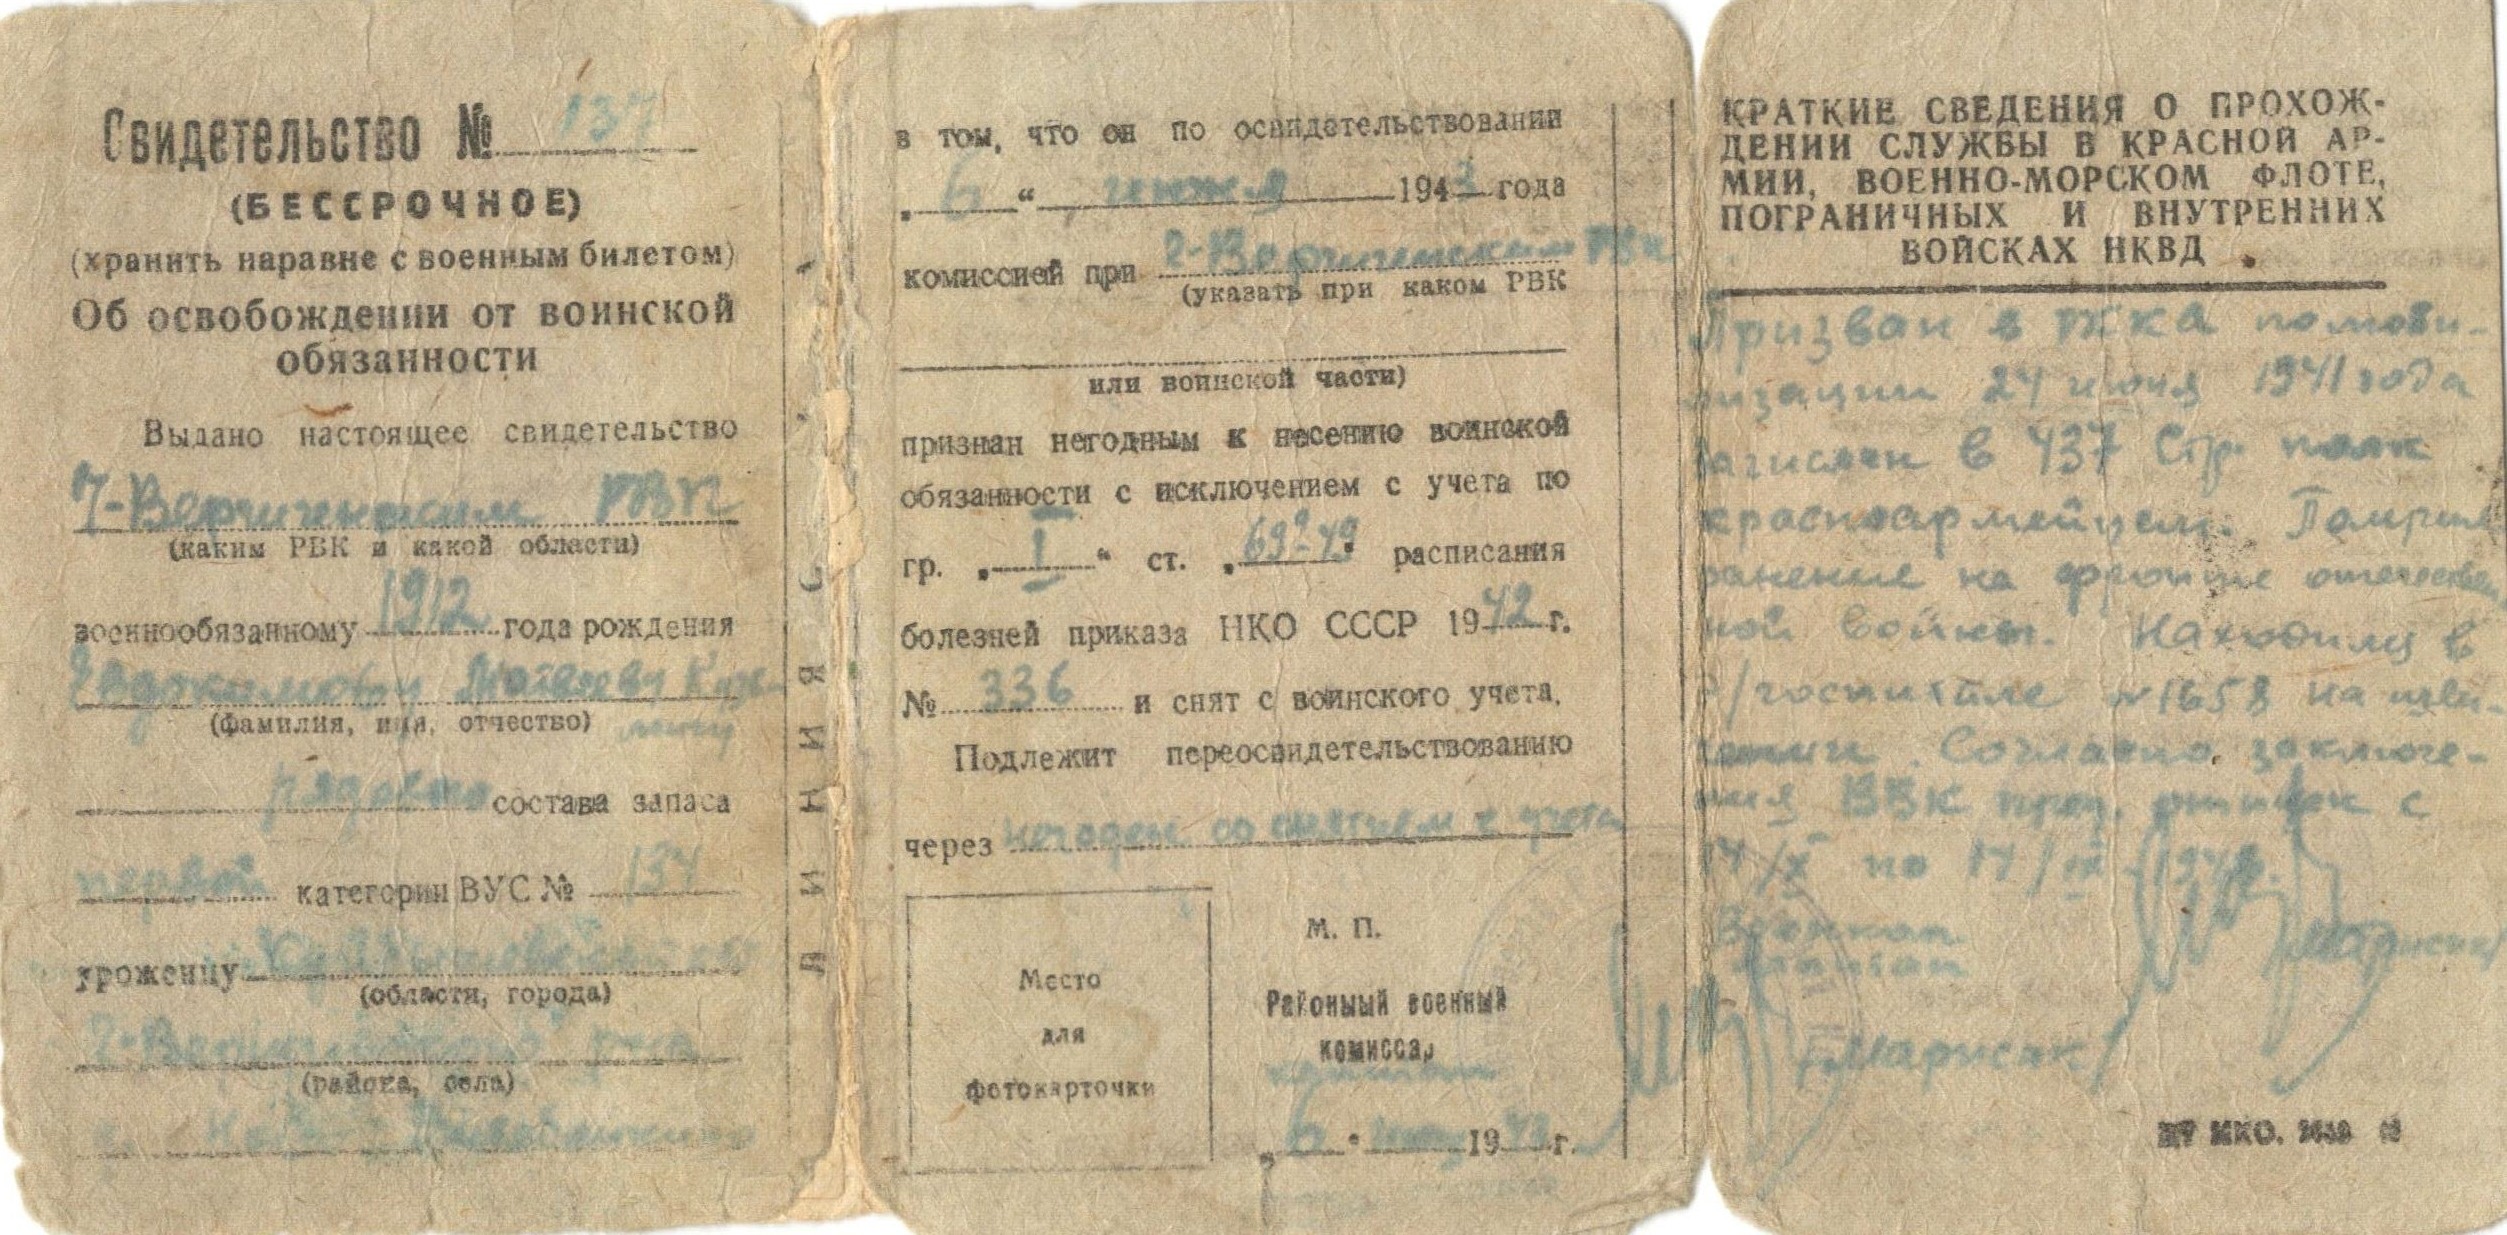 Свидетельство № 137
(БЕССРОЧНОЕ)
(хранить наравне с военным билетом)
Об освобождении от воинской
обязанности
Выдано настоящее свидетельство
РВК
(каким РВК и какой области)
военнообязанному 1912 года рождения
Евдокимову Матвею Кузь-
мичу
(фамилия, имя, отчество)
рядового состава запаса
первой категории ВУС № 134
уроженцу
(области, города)
(района, села)
в том, что он по освидетельствовании
„ 6 “ июня 1943 года
комиссией при РВК
(указать при каком РВК
или воинской части)
признан негодным к несению воинской
обязанности с исключением с учета по
гр. „ I “ ст. „ 69-49 “ расписания
болезней приказа НКО СССР 1942 г.
№ 336 и снят с воинского учета.
Подлежит переосвидетельствованию
через негоден со снятием с учета
Место
для
фотокарточки
М. П.
Районный военный
комиссар
капитан
„ 6 “ 19 г.
КРАТКИЕ СВЕДЕНИЯ О ПРОХОЖ-
ДЕНИИ СЛУЖБЫ В КРАСНОЙ АР-
МИИ, ВОЕННО-МОРСКОМ ФЛОТЕ,
ПОГРАНИЧНЫХ И ВНУТРЕННИХ
ВОЙСКАХ НКВД
Призван в РККА по моби-
лизации 24 июня 1941 года
зачислен в 437 Стр. полк
красноармейцем.
ранение на фронте отечествен
ной войны. Находился в
э/госпитале № 1658 на изле-
чении. Согласно заключе-
ния ВВК с
14/X по 14/IX
Военком
капитан
/Марисак/